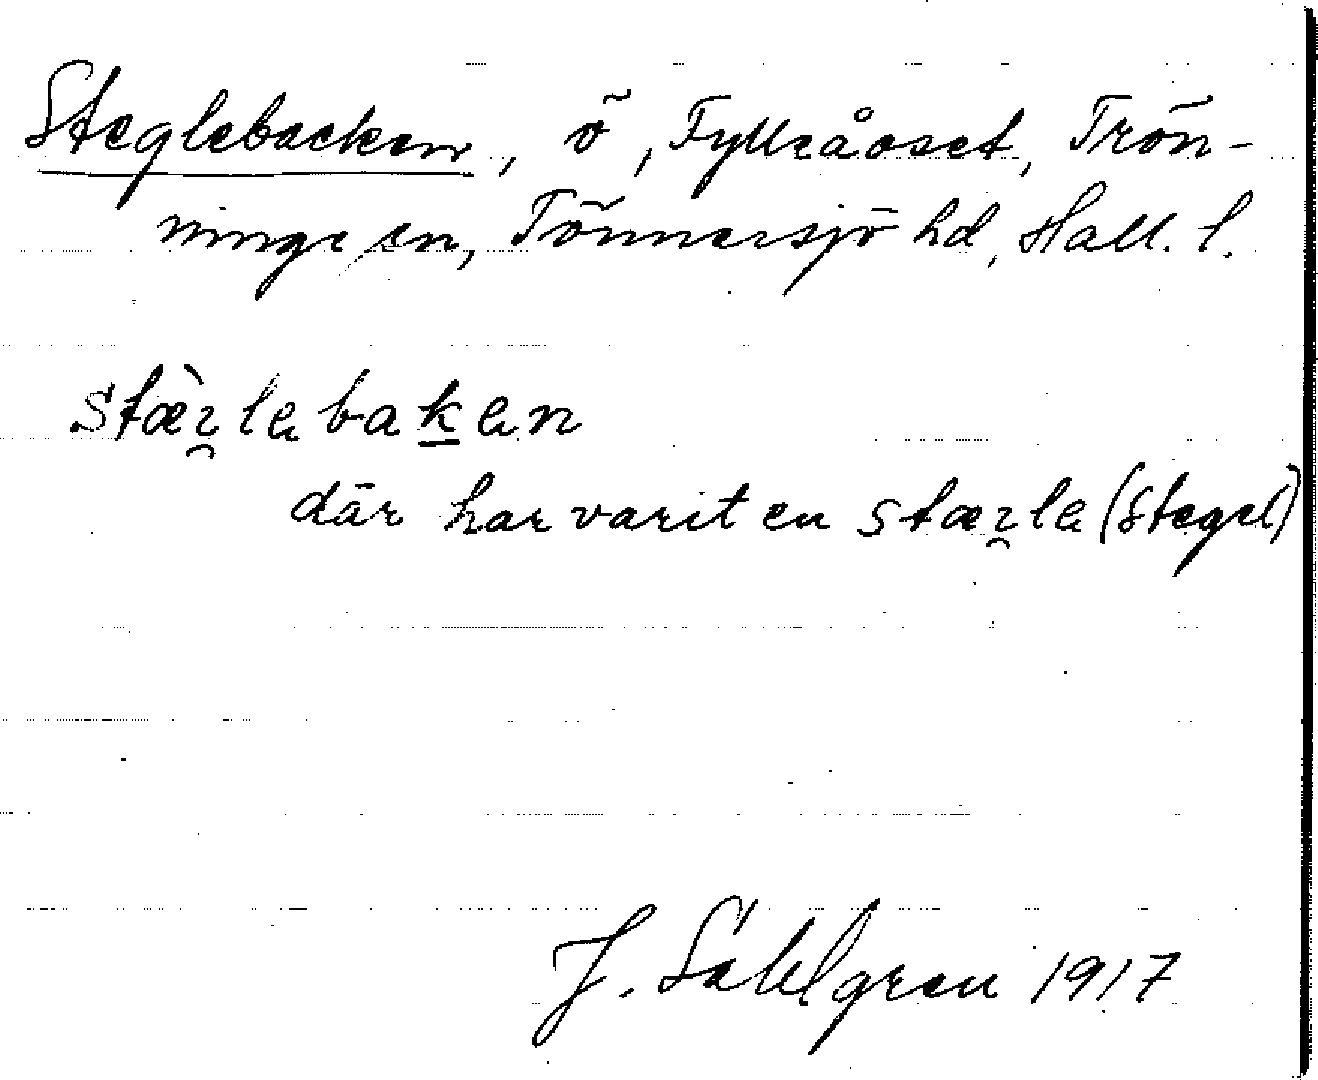 Steglebacken, ö, Fylleåoset, Trön-
ninge sn, Tönnersjö hd, Hall. l.
stæ̀ı̯lebak̲en
där har varit en stæı̯le (stegel)
J. Sahlgren 1917